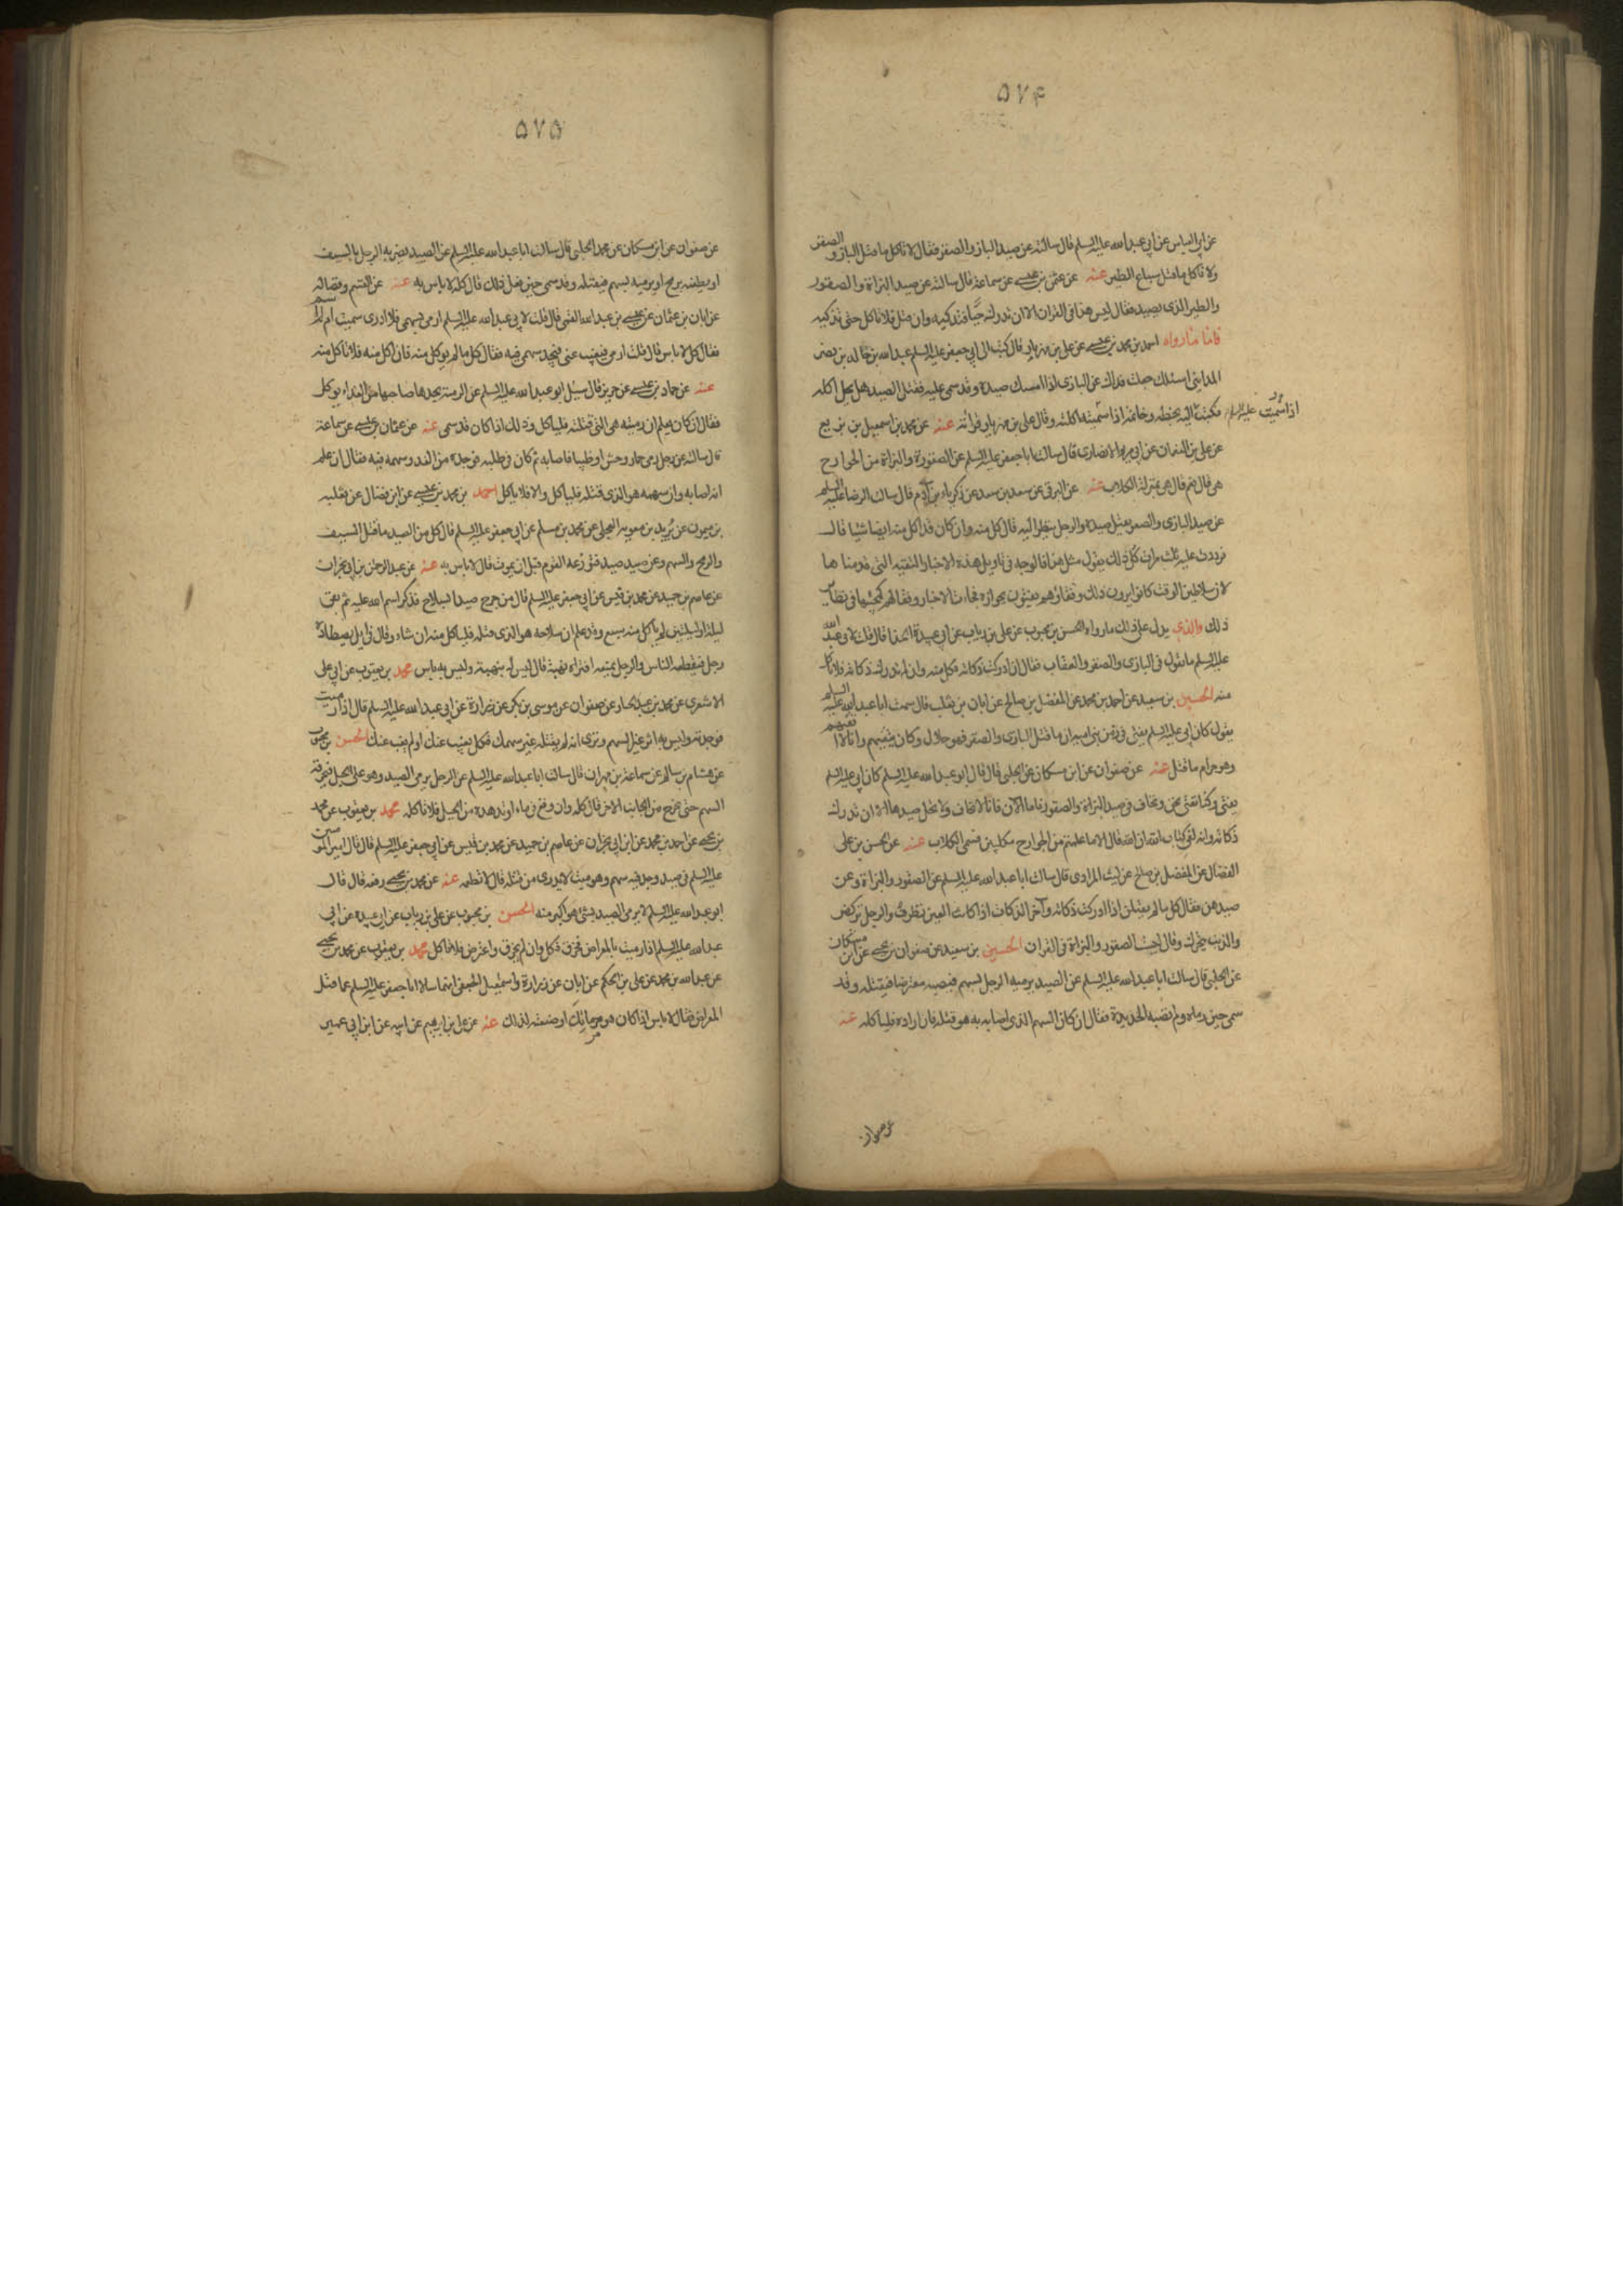 ۵۷۴
عن ابى العباس عن ابى عبد الله عليه السلم قال سالته عن صيد البازى والصقر فقال لا تاكل ما قتل البازى والصقر
ولا تاكل ما قتل سباع الطير عنه عن عثمن بن عيسى عن سماعة قال سالته عن صيد البزاة والصقور
والطير الذى يصيد فقال ليس هذا فى القران الا ان تدركه حيا فتذكيه وان قتل فلا تاكل حتى تذكيه
فاما ما رواه احمد بن محمد بن عيسى عن على بن مهزيار قال كتب الى ابى جعفر عليه السلم عبد الله بن خالد بن نصر
المداينى اسئلك جعلت فداك عن البازى اذا امسك صيده وقد سمى عليه فقتل الصيد هل يحل اكله
فكتب عليه السلم اليه بخطه وخاتمه اذا سميته اكلته وقال على بن مهزيار قرأته عنه عن محمد بن اسمعيل بن بزيع
اذا سميت
عن على بن النعمان عن ابى مريم الانصارى قال سالت ابا جعفر عليه السلم عن الصقورة والبزاة من الجوارح
هى قال نعم قال هى بمنزلة الكلاب عنه عن البرقى عن سعد بن سعد عن زكرياء بن آدم قال سالت الرضا عليه السلم
عن صيد البازى والصقر يقتل صيده والرجل ينظر اليه قال كل منه وان كان قد اكل منه ايضا شيئا قال
فرددت عليه ثلث مرات كل ذلك يقول مثل هذا فالوجه فى تاويل هذه الاخبار التقية التى قدمناها
لان سلاطين الوقت كانوا يرون ذلك وفقاؤهم يفتون بجوازه فجاءت الاخبار وفقا لهم كمجيئها فى نظاير
ذلك والذى يدل على ذلك ما رواه الحسن بن محبوب عن على بن رياب عن ابى عبيدة الحذا قال قلت لابى عبد الله
عليه السلم ما تقول فى البازى والصقر والعقاب فقال ان ادركت ذكاته فكل منه وان لم تدرك ذكاته فلا تاكل
منه الحسين بن سعيد عن احمد بن محمد عن المفضل بن صالح عن ابان بن تغلب قال سمعت ابا عبد الله عليه السلم
يقول كان ابى عليه السلم يفتى فى زمن بنى امية ان ما قتل البازى والصقر فهو حلال وكان يتقيهم وانا لا اتقيهم
وهو حرام ما قتل عنه عن صفوان عن ابن مسكان عن الحلبى قال قال ابو عبد الله عليه السلم كان ابى عليه السلم
يفتى وكنا نفتى نحن ونخاف فى صيد البزاة والصقور فاما الآن فانا لا نخاف ولا يحل صيدها الا ان تدرك
ذكاته وانه لفى كتاب الله ان الله قال الا ما علمتم من الجوارح مكلبين فسمى الكلاب عنه عن الحسن بن على
الفضال عن المفضل بن صالح عن ليث المرادى قال سالت ابا عبد الله عليه السلم عن الصقور والبزاة وعن
صيدهن فقال كل ما لم يقتلن اذا ادركت ذكاته وآخر الذكاة اذا كانت العين تطرف والرجل تركض
والذنب يتحرك وقال ليست الصقور والبزاة فى القران الحسين بن سعيد عن صفوان بن يحيى عن ابن مسكان
عن الحلبى قال سالت ابا عبد الله عليه السلم عن الصيد يرميه الرجل بسهم فيصيبه معترضا فيقتله وقد
سمى حين رماه ولم تصبه الحديدة فقال ان كان السهم الذى اصابه به هو قتله فان اراده فلياكله عنه
عن صفوان
۵۷۵
عن صفوان عن ابن مسكان عن محمد الحلبى قال سالت ابا عبد الله عليه السلم عن الصيد يضربه الرجل بالسيف
او يطعنه برمح او يرميه بسهم فيقتله وقد سمى حين فعل ذلك قال كله لا باس به عنه عن القسم وفضالة
عن ابان بن عثمان عن عيسى بن عبد الله القمى قال قلت لابى عبد الله عليه السلم ارمى بسهمى فلا ادرى سميت ام لم اسم
فقال كل لا باس قال قلت ارمى فيغيب عنى فنجد سهمى فيه فقال كل ما لم يوكل منه فان اكل منه فلا تاكل منه
عنه عن حماد بن عيسى عن حريز قال سئل ابو عبد الله عليه السلم عن الرمية يجدها صاحبها من الغداء يوكل
فقال ان كان يعلم ان رميته هى التى قتلته فلياكل وذلك اذا كان قد سمى عنه عن عثمان بن عيسى عن سماعة
قال سالته عن رجل رمى حمار وحش او ظبيا فاصابه ثم كان فى طلبه فوجده من الغد وسهمه فيه فقال ان علم
انه اصابه وان سهمه هو الذى قتله فلياكل والا فلا ياكل احمد بن محمد بن عيسى عن ابن فضال عن ثعلبة
بن ميمون عن بريد بن معوية العجلى عن محمد بن مسلم عن ابى جعفر عليه السلم قال كل من الصيد ما قتل السيف
والرمح والسهم وعن صيد صيد فتوزعه القوم قبل ان يموت قال لا باس به عنه عن عبد الرحمن بن ابى نجران
عن عاصم بن حميد عن محمد بن قيس عن ابى جعفر عليه السلم قال من جرح صيدا بسلاح فذكر اسم الله عليه ثم بقى
ليلة او ليلتين لم ياكل منه سبع وقد علم ان سلاحه هو الذى قتله فلياكل منه ان شاء وقال فى ايل يصطاده
رجل فيقطعه الناس والرجل يمنعه افتراه نهبة قال ليس له بنهبة وليس به باس محمد بن يعقوب عن ابى على
الاشعرى عن محمد بن عبد الجبار عن صفوان عن موسى بن بكر عن زرارة عن ابى عبد الله عليه السلم قال اذا رميت
فوجدته وليس به اثر غير السهم وترى انه لم يقتله غير سهمك فكل يغيب عنك او لم يغب عنك الحسن بن محبوب
عن هشام بن سالم عن سماعة بن مهران قال سالت ابا عبد الله عليه السلم عن الرجل يرمى الصيد وهو على الجبل فيخرقه
السهم حتى يخرج من الجانب الاخر قال كله وان وقع فى ماء او تدهده من الجبل فلا تاكله محمد بن يعقوب عن محمد
بن يحيى عن احمد بن محمد عن ابن ابى نجران عن عاصم بن حميد عن محمد بن قيس عن ابى جعفر عليه السلم قال قال امير المومنين
عليه السلم فى صيد وجد فيه سهم وهو ميت لا يدرى من قتله قال لا تطعمه عنه عن محمد بن يحيى رفعه قال قال
ابو عبد الله عليه السلم لا يرمى الصيد بشى هو اكبر منه الحسن بن محبوب عن على بن رياب عن ابى عبيدة عن ابى
عبد الله عليه السلم اذا رميت بالمعراض فخرق فكل وان لم يخرق واعترض فلا تاكل محمد بن يعقوب عن محمد بن يحيى
عن عبد الله بن محمد عن على بن الحكم عن ابان عن زرارة واسمعيل الجعفى انهما سالا ابا جعفر عليه السلم عما قتل
المعراض فقال لا باس اذا كان هو مرماتك او صنعته لذلك عنه عن على بن ابرهيم عن ابيه عن ابن ابى عمير